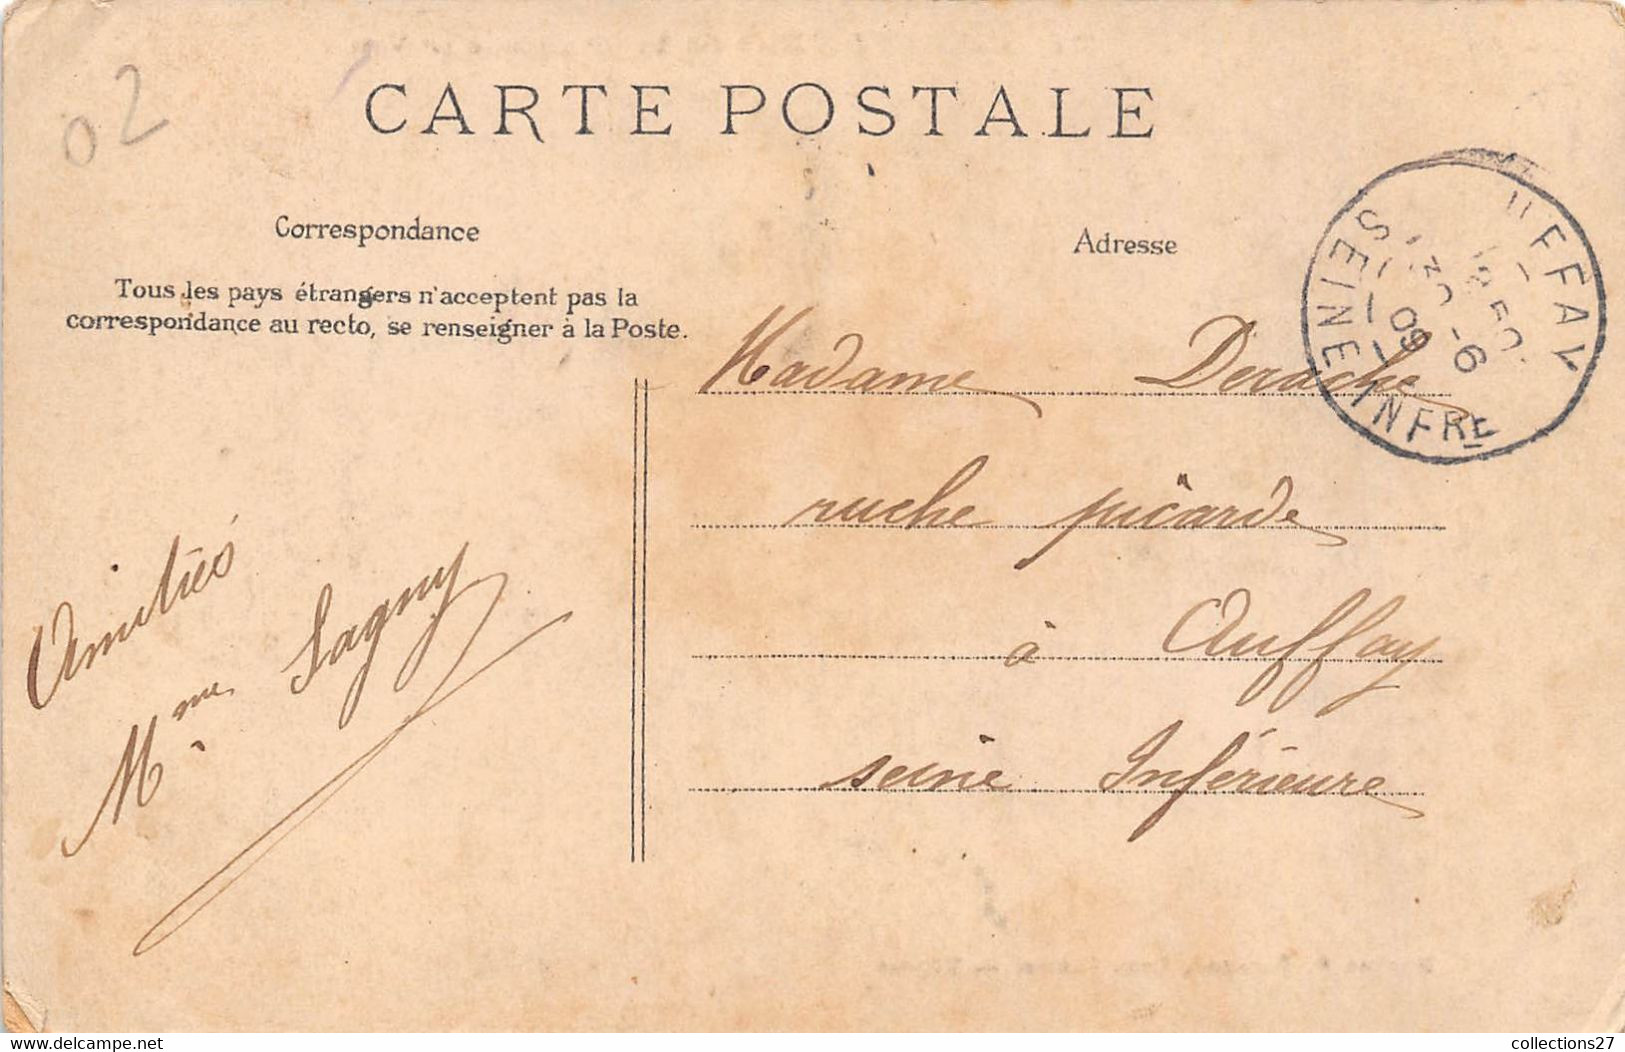 02
CARTE POSTALE
Correspondance
Tous les pays étrangers n'acceptent pas la
correspondance au recto, se renseigner à la Poste.
Amitiés
Mme Lagny
Adresse
Madame Derache
ruche picarde
à Auffay
seine Inférieure
UFFAY
SEINE INFRE
09
collections27